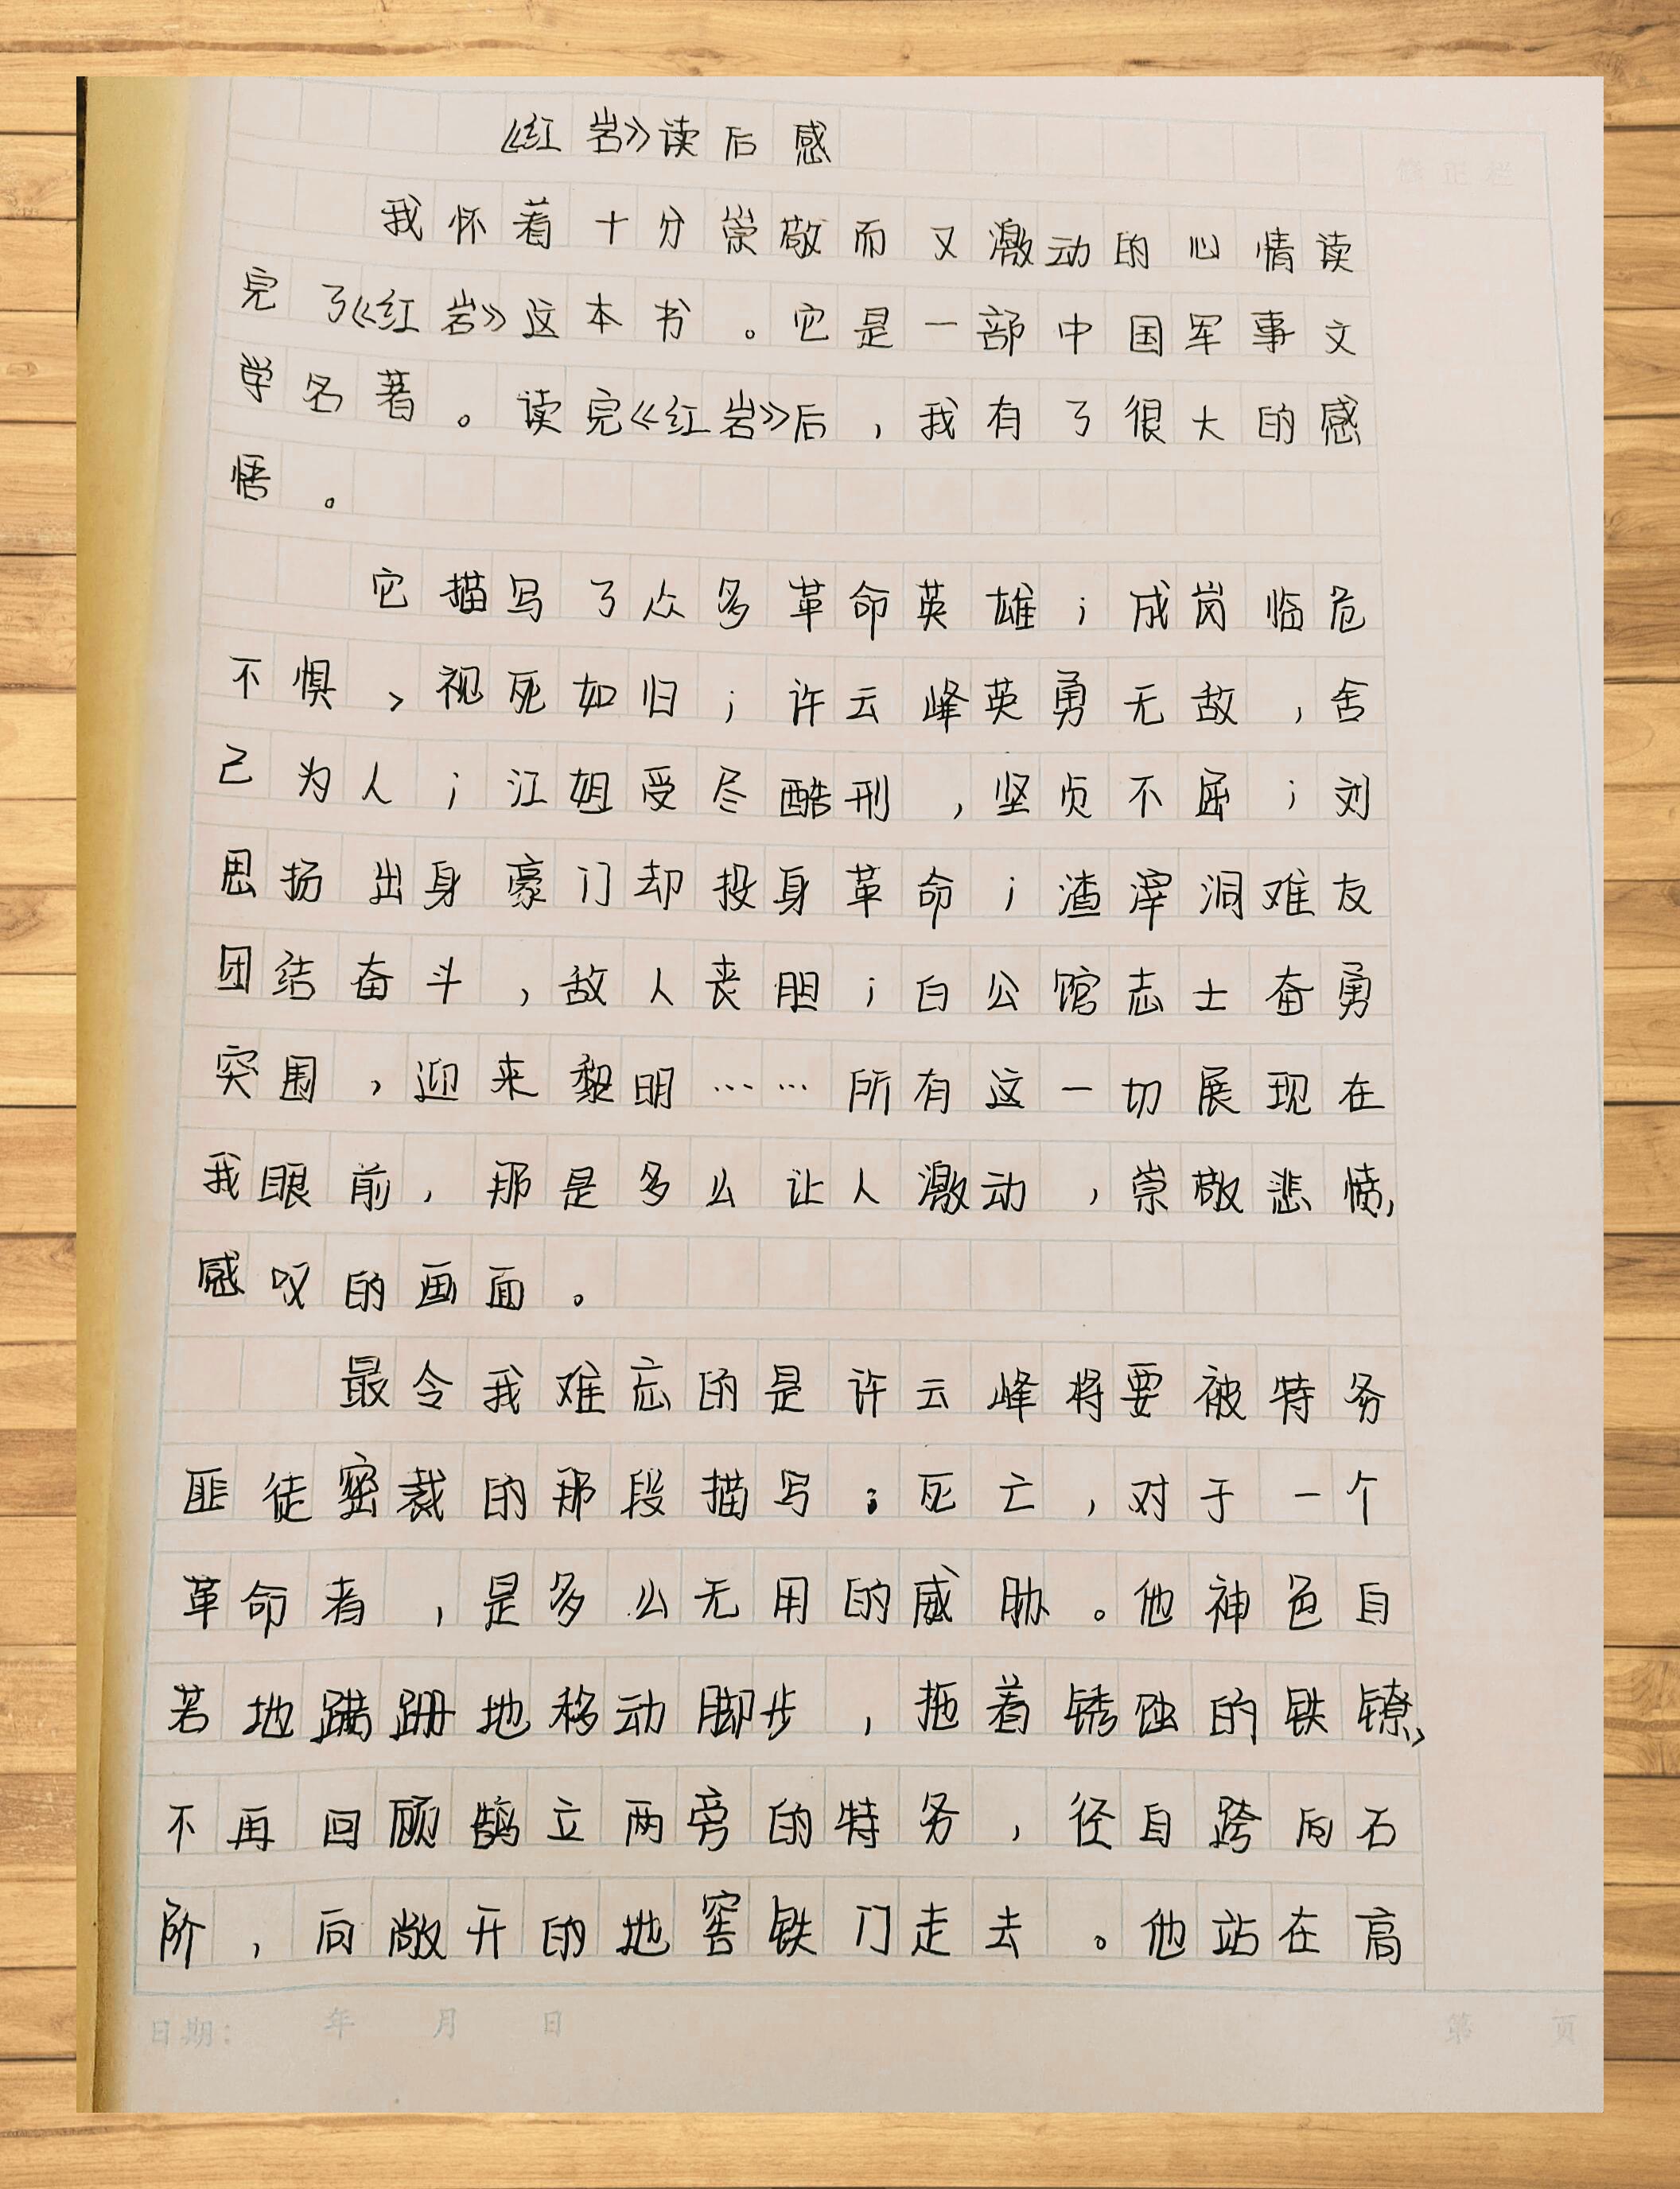 《红岩》读后感
我怀着十分崇敬而又激动的心情读
完了《红岩》这本书。它是一部中国军事文
学名著。读完《红岩》后，我有了很大的感
悟。
它描写了众多革命英雄；成岗临危
不惧，视死如归；许云峰英勇无敌，舍
己为人；江姐受尽酷刑，坚贞不屈；刘
思扬出身豪门却投身革命；渣滓洞难友
团结奋斗，敌人丧胆；白公馆志士奋勇
突围，迎来黎明……所有这一切展现在
我眼前，那是多么让人激动，崇敬悲愤，
感叹的画面。
最令我难忘的是许云峰将要被特务
匪徒密裁的那段描写：死亡，对于一个
革命者，是多么无用的威胁。他神色自
若地蹒跚地移动脚步，拖着锈蚀的铁镣，
不再回顾鹄立两旁的特务，径自跨向石
阶，向敞开的地窖铁门走去。他站在高
日期： 年 月 日 第 页